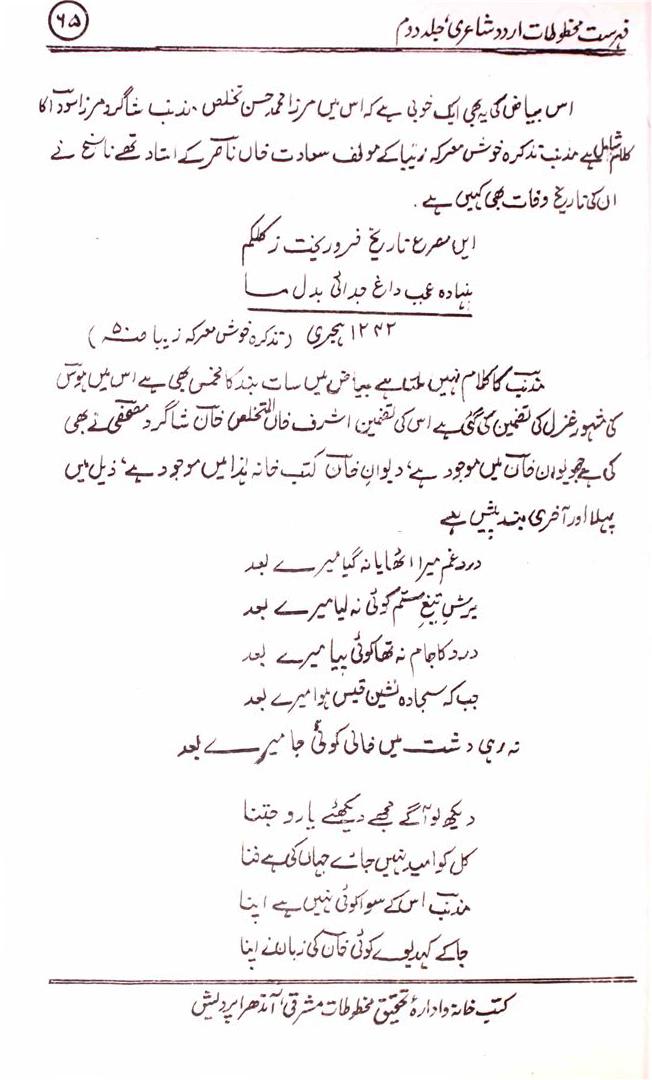 ۶۵
فہرست مخطوطات اردو شاعری، جلد دوم
اس بیاض کی یہ بھی ایک خوبی ہے کہ اس میں مرزا محمد حسن تخلص مذنب شاگرد مرزا سودا کا
کلام شامل ہے مذنب تذکرہ خوش معرکہ زیبا کے مولف سعادت خاں ناصر کے استاد تھے ناسخ نے
ان کی تاریخ وفات بھی کہیں ہے .
ایں مصرع تاریخ فرو ریخت ز کلکم
بنہادہ عجب داغ جدائی بدل ما
۱۲۴۲ ہجری (تذکرہ خوش معرکہ زیبا صـ۵۰)
مذنب کا کلام نہیں ملتا ہے بیاض میں سات بند کا مخمس بھی ہے اس میں ہوس
کی مشہور غزل کی تضمین کی گئی ہے اس کی تضمین اشرف خاں المتخلص خان شاگرد مصحفی نے بھی
کی ہے جو دیوان خان میں موجود ہے، دیوانِ خان کتب خانہ ہذا میں موجود ہے، ذیل میں
پہلا اور آخری بند پیش ہے
درد غم میرا اٹھایا نہ گیا میرے بعد
برش تیغِ ستم کوئی نہ لیا میرے بعد
درد کا جام نہ تھا کوئی پیا میرے بعد
جب کہ سجادہ نشین قیس ہوا میرے بعد
نہ رہی دشت میں خالی کوئی جا میرے بعد
دیکھ لو آگے مجھے دیکھئے یارو جتنا
کل کو امید نہیں جائے جہاں کی ہے فنا
مذنب اس کے سوا کوئی نہیں ہے اپنا
جا کے کہدیوے کوئی خان کی زبانے اپنا
کتب خانہ و ادارۂ تحقیق مخطوطات مشرقی، آندھرا پردیش